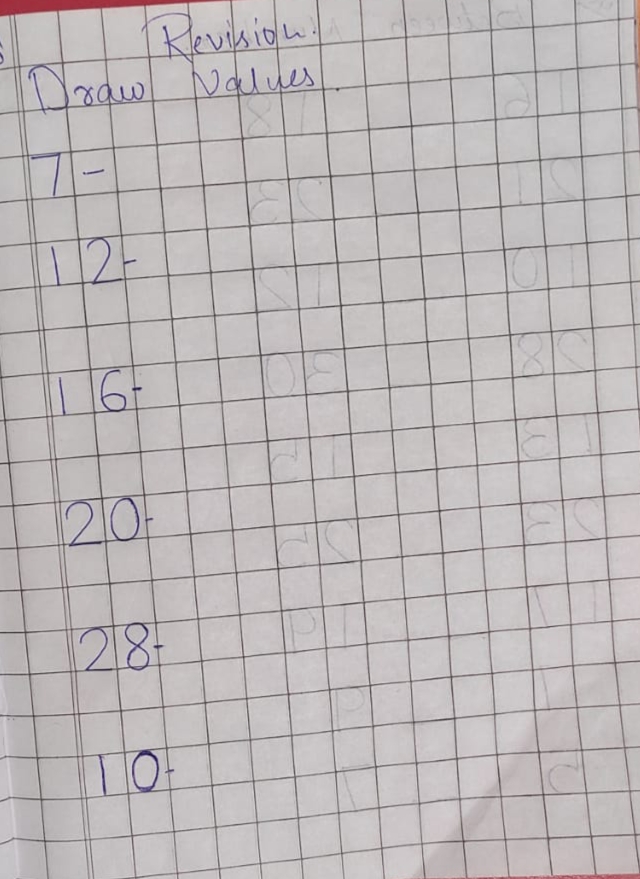 Revision:
Draw Values.
7-
12-
16-
20-
28-
10-